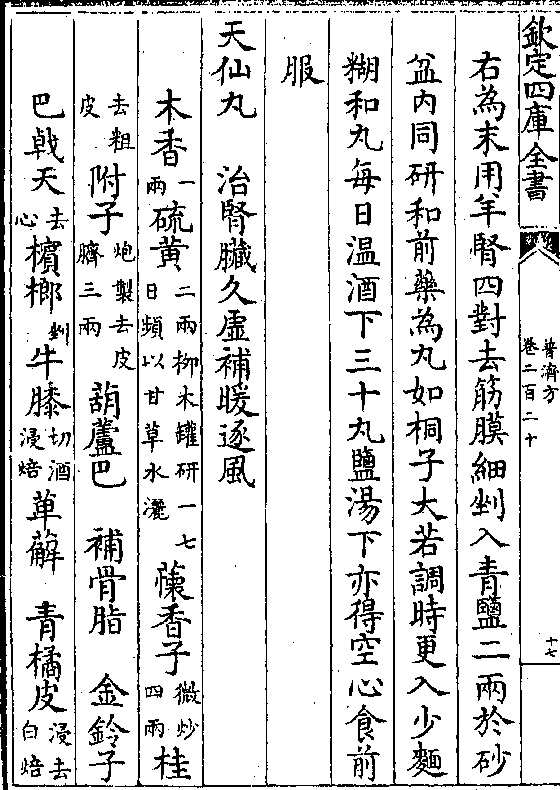 欽定四庫全書
普濟方
卷二百二十
十七
右為末用羊腎四對去筋膜細剉入青鹽二兩於砂
盆内同研和前藥為丸如桐子大若調時更入少麵
糊和丸每日温酒下三十丸鹽湯下亦得空心食前
服
天仙丸　治腎臟久虚補暖逐風
木香一兩硫黄二兩柳木罐研一七日頻以甘草水灑蘹香子微炒四兩桂
去粗皮附子炮製去皮臍三兩葫蘆巴　補骨脂　金鈴子
巴㦸天去心檳榔剉牛膝切酒浸焙萆薢　青橘皮浸去白焙